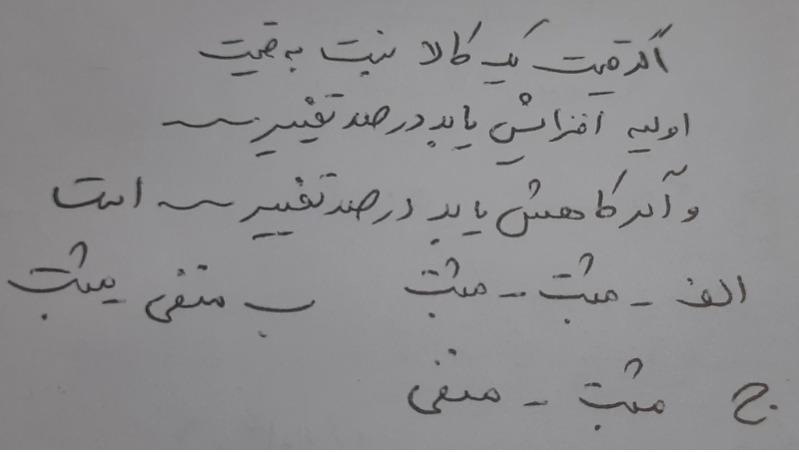 اگر قیمت یک کالا نسبت به قیمت
اولیه افزایش یابد درصد تغییر ــــ
و اگر کاهش یابد درصد تغییر ــــ است
الف - مثبت - مثبت ب منفی مثبت
ج مثبت - منفی